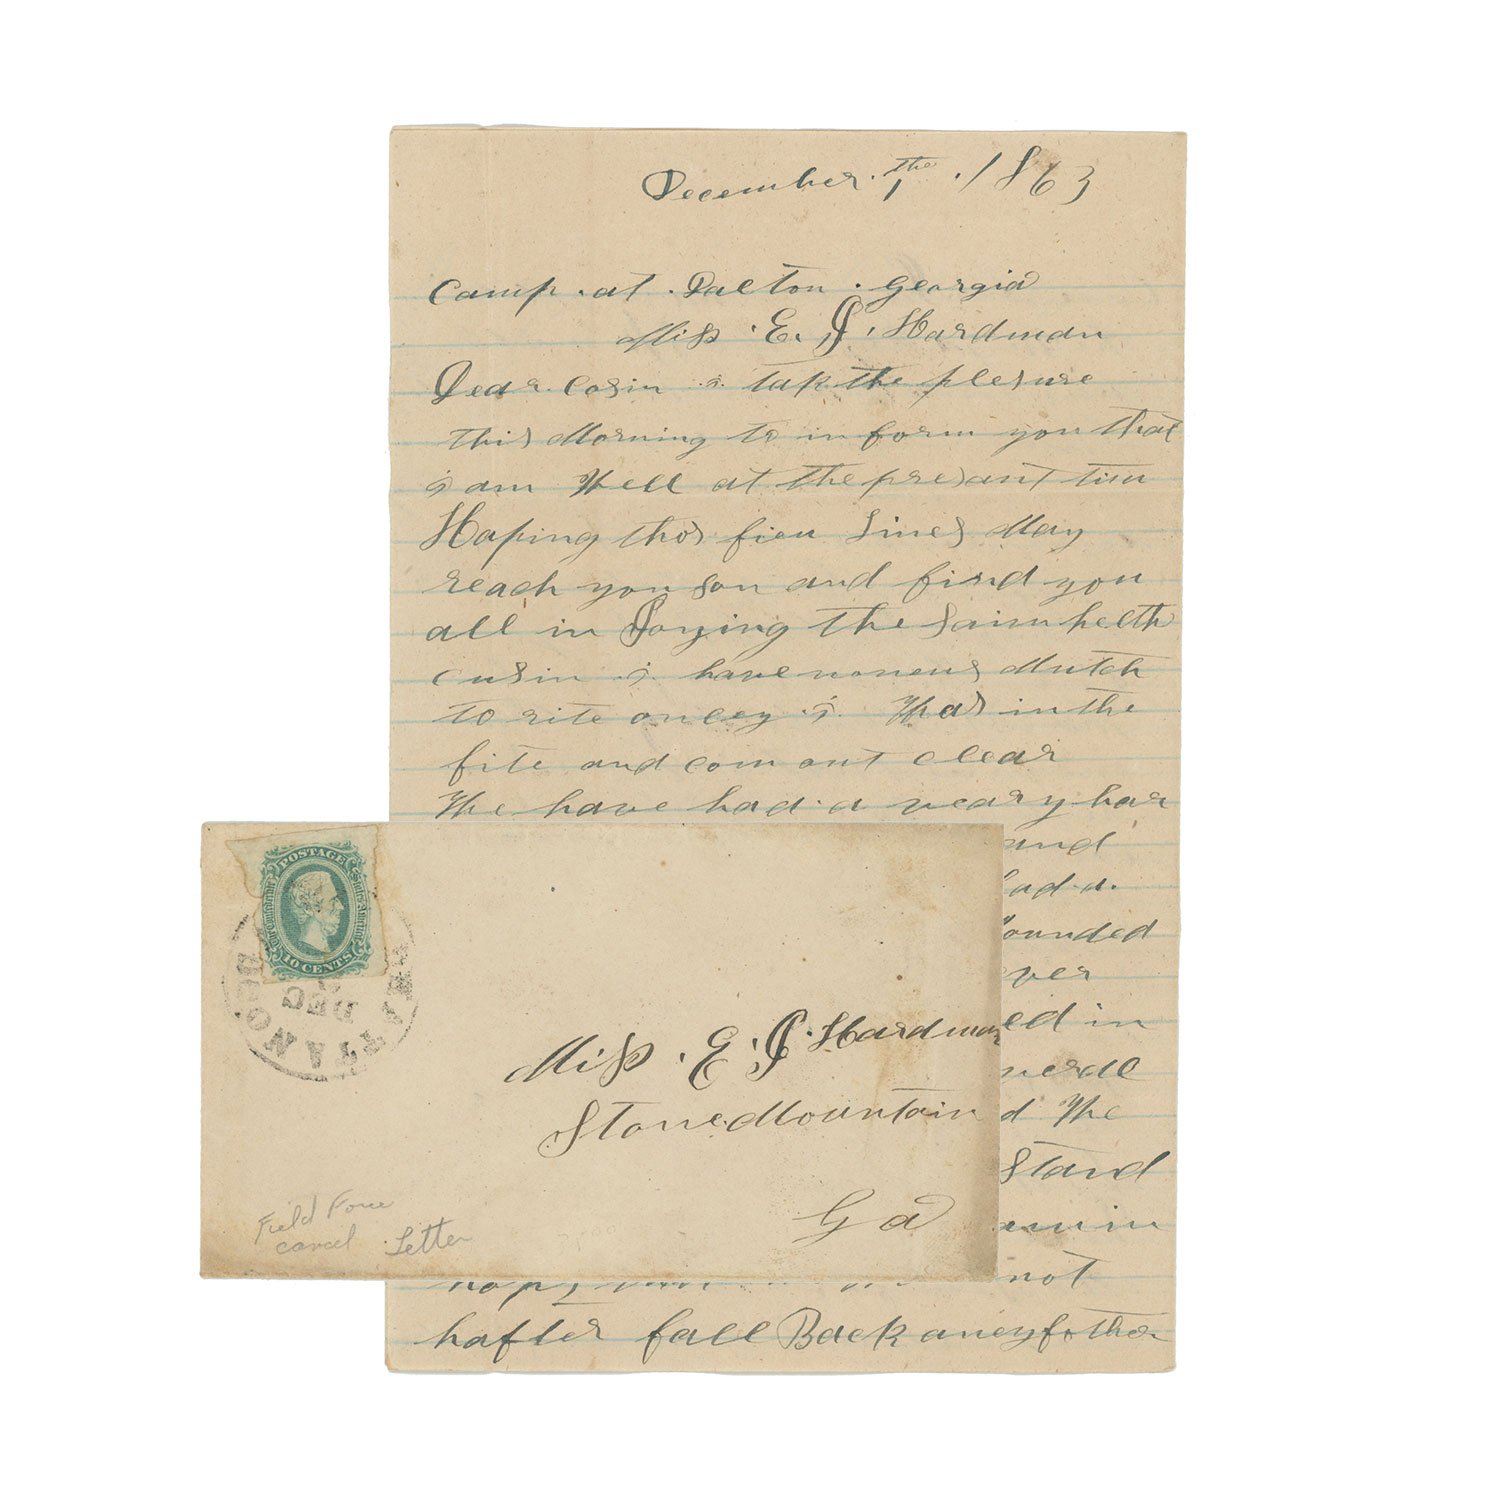 December. 1the . 1863
Camp . at . Dalton . Georgia
Miss . E. J. Hardman
Dear Cosin i take the plesure
this Morning to in form you that
i am Well at the presant tim
Hoping thes fieu Lines May
reach you son and find you
all in Joying the saim helth
cusin . i . have no neus Mutch
to rite onley . i . Was in the
fite and com out clear
We have had a veary har
and
had a.
ounded
ever
ed in
nerall
d We
Stand
not
hafter fall Back aney fother
POSTAGE
The Confederate States of America
10 CENTS
DEC
Miss . E . J . Hardman
Stone Mountain
Ga
Field Force
cancel . Letter